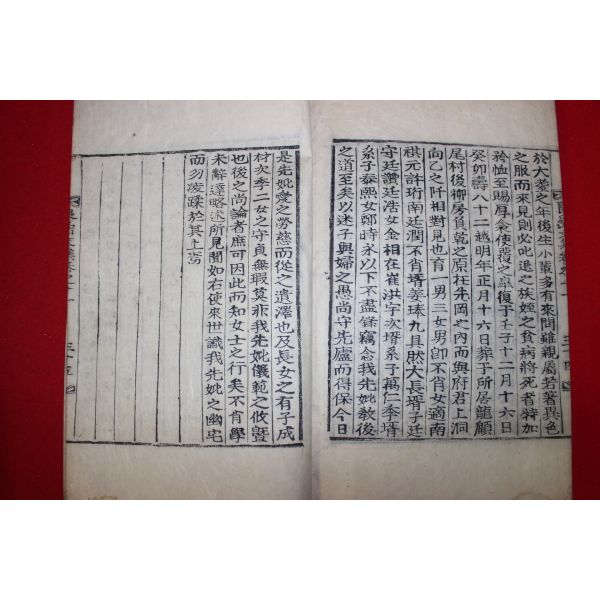 於大耋之年後生小輩多有來問雖親屬若著異色
之服而來見則必此退之族姪之貧病將死者特加
矜恤至賜厚衾使覆之卓復于壬子十二月十六日
癸卯壽八十二越明年正月十六日葬于所居龍顧
尾村後柳房負乾之原枉先岡之內而與府君上洞
向乙之阡相對見也育一男三女男卽不肖女適南
祺元許珩南廷潤不肖壻姜瑧九具然大長壻子廷
守廷讚廷浩女金相在崔洪宇次壻系子萬仁季壻
系子泰熙女鄭時永以下不盡錄竊念我先妣敎後
之道至矣以迷子與婦之愚尚守先廬而得保今日
是先妣愛之勞慈而從之遺澤也及長女之有子成
材次季二女之守貞無瑕莫非我先妣儀範之攸曁
也後之尚論者庶可因此而知女士之行矣不肖學
未辭達略述所見聞如右使來世識我先妣之幽宅
而勿凌蹂於其上當